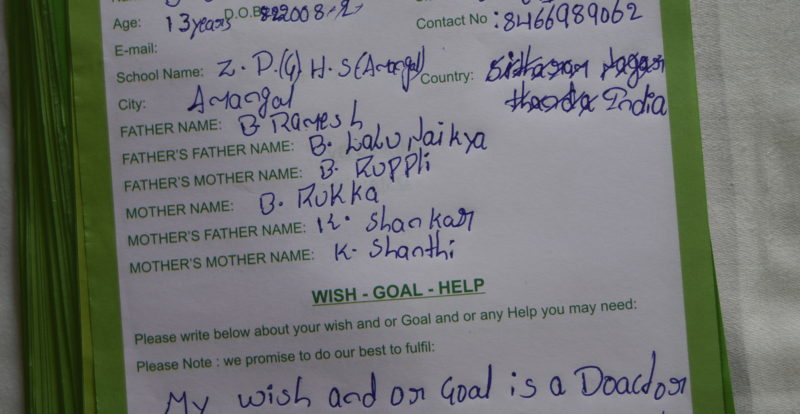 Age: 13 years D.O.B 2008-2
Contact No : 8466989062
E-mail:
School Name: Z. P.(G) H. S (Amangal)
Country: India
City: Amangal
FATHER NAME: B. Ramesh
FATHER'S FATHER NAME: B. Lalu Naikya
FATHER'S MOTHER NAME: B. Ruppli
MOTHER NAME: B. Rukka
MOTHER'S FATHER NAME: K. Shankar
MOTHER'S MOTHER NAME: K. Shanthi
WISH - GOAL - HELP
Please write below about your wish and or Goal and or any Help you may need:
Please Note : we promise to do our best to fulfil:
My wish and or Goal is a Doactor